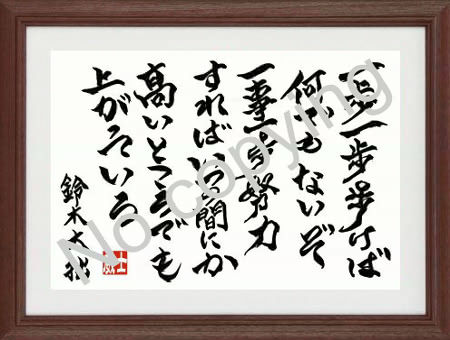 一歩一歩歩けば
何でもないぞ
一歩一歩努力
すればいつの間にか
高いところでも
上がっている
鈴木大拙
No copying